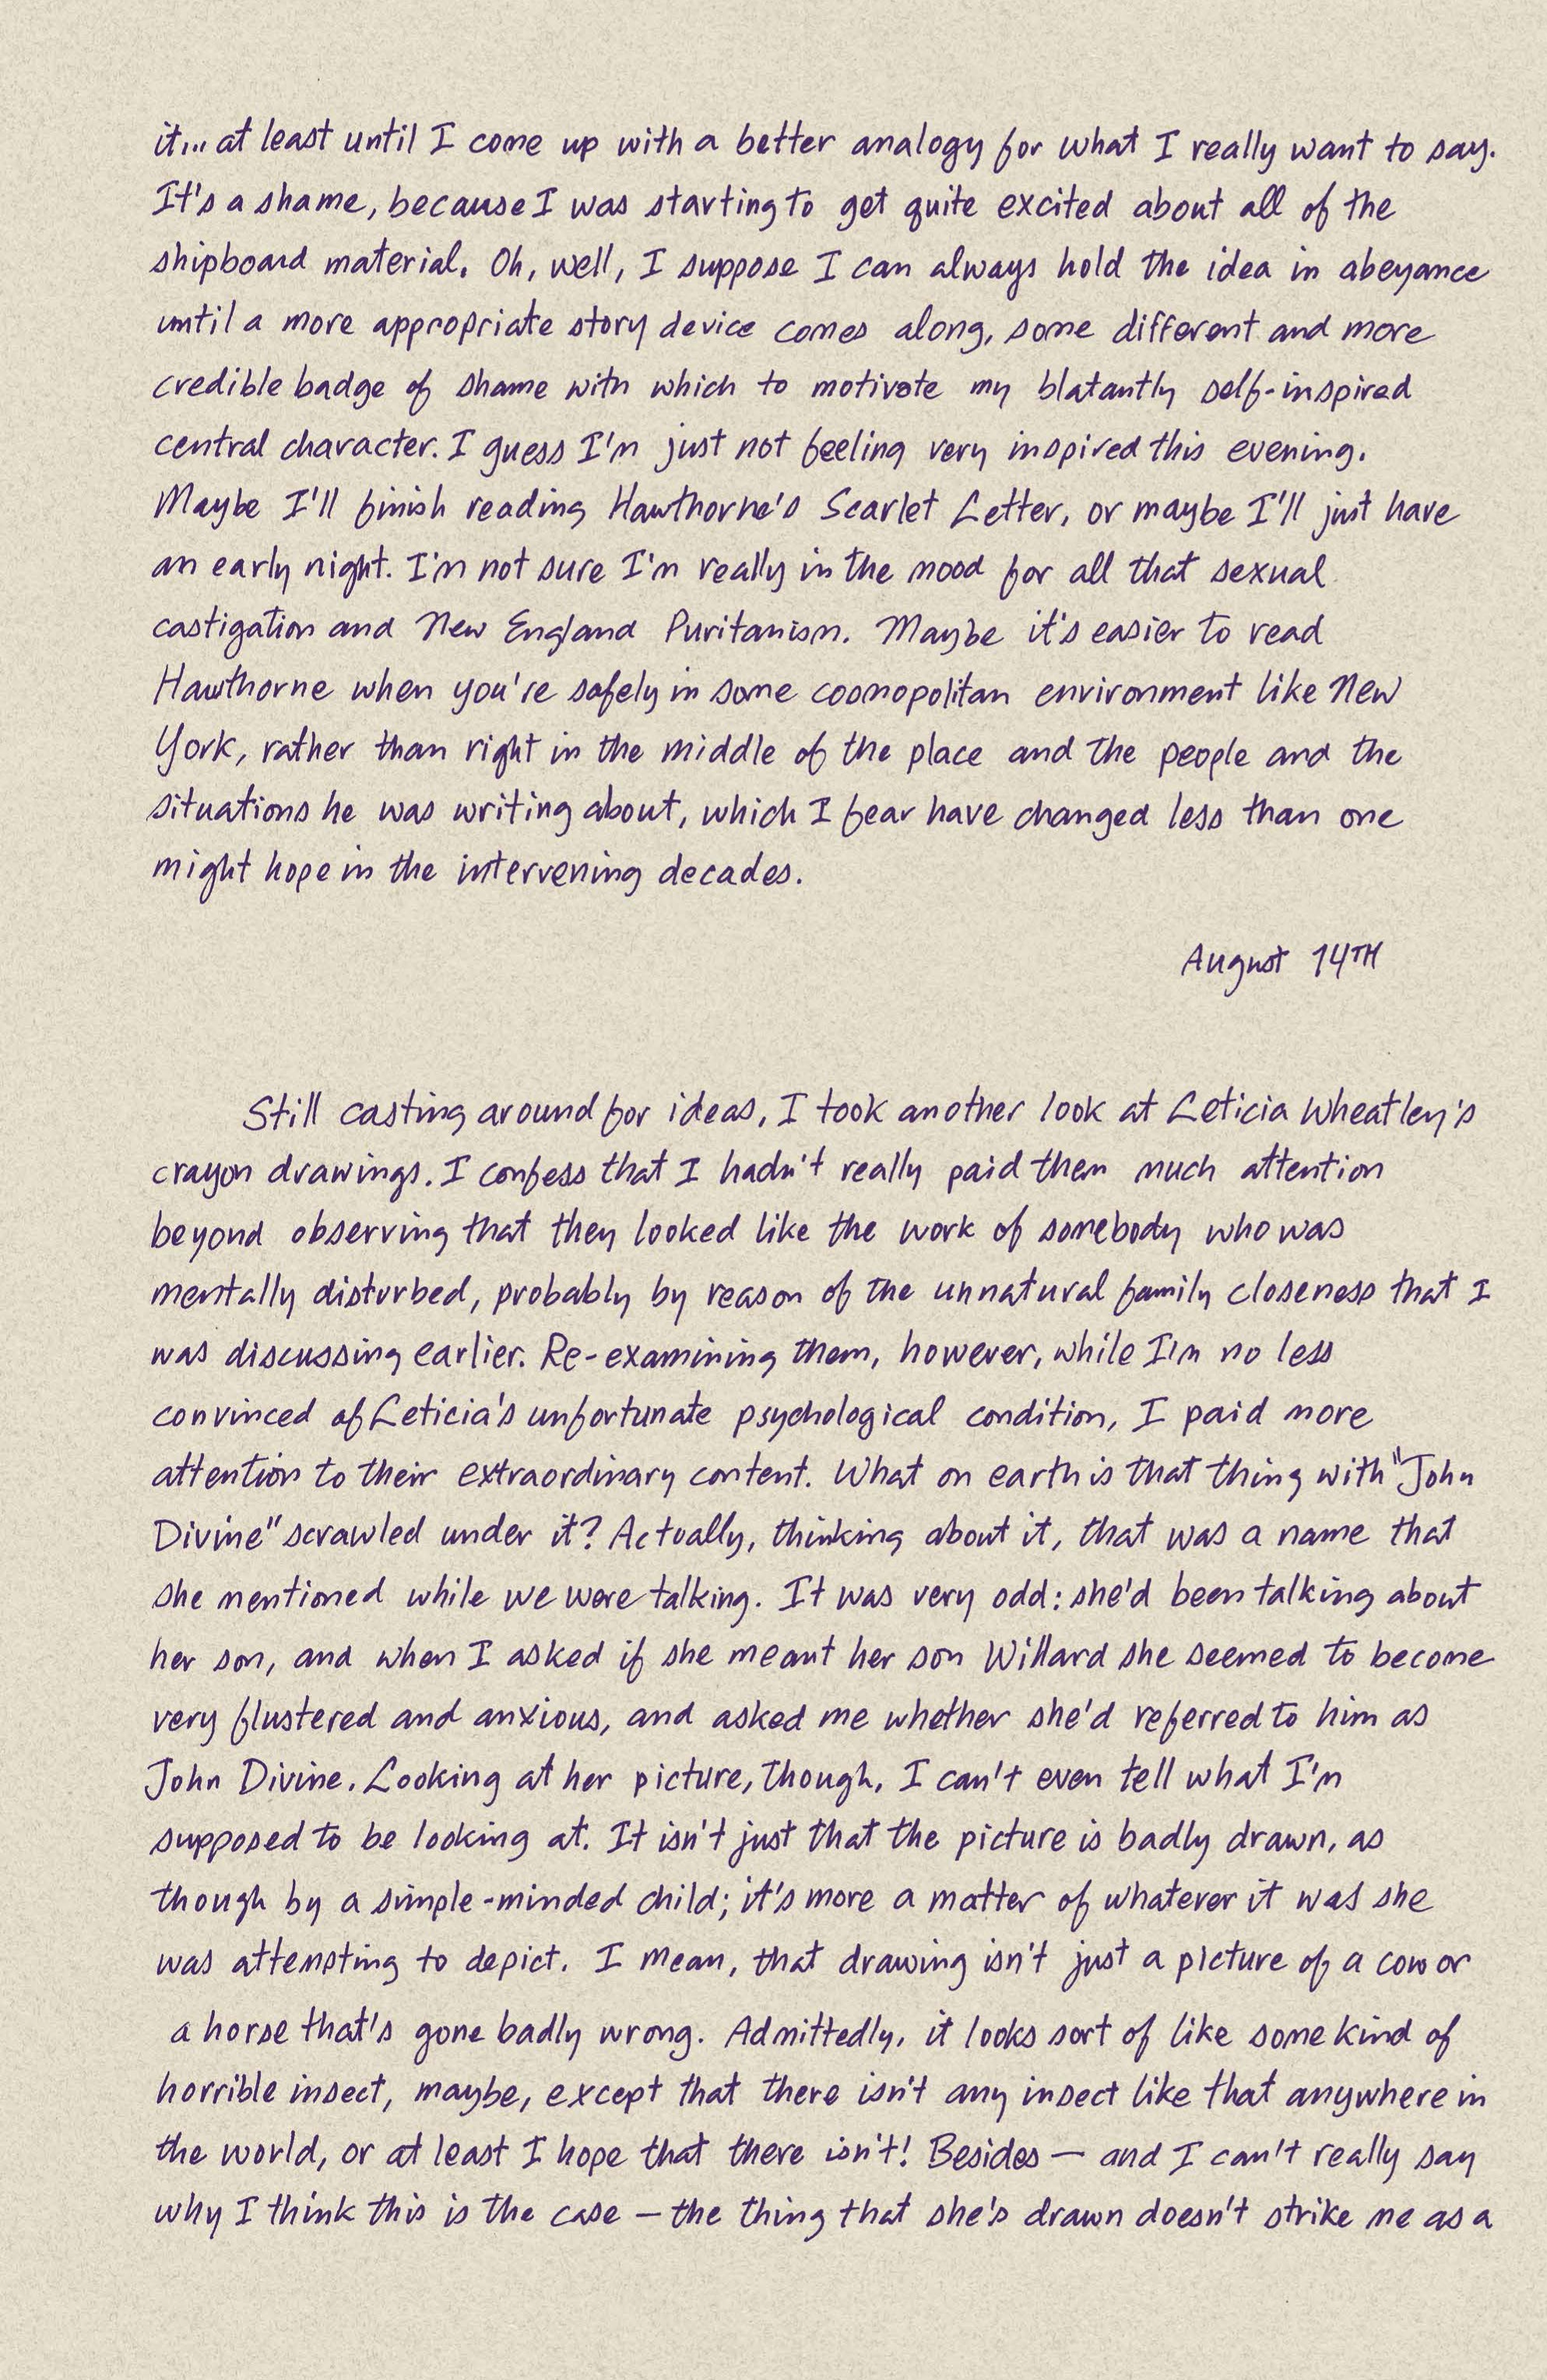 it... at least until I come up with a better analogy for what I really want to say.
It's a shame, because I was starting to get quite excited about all of the
shipboard material. Oh, well, I suppose I can always hold the idea in abeyance
until a more appropriate story device comes along, some different and more
credible badge of shame with which to motivate my blatantly self-inspired
central character. I guess I'm just not feeling very inspired this evening.
Maybe I'll finish reading Hawthorne's Scarlet Letter, or maybe I'll just have
an early night. I'm not sure I'm really in the mood for all that sexual
castigation and New England Puritanism. Maybe it's easier to read
Hawthorne when you're safely in some cosmopolitan environment like New
York, rather than right in the middle of the place and the people and the
situations he was writing about, which I fear have changed less than one
might hope in the intervening decades.
August 14TH
Still casting around for ideas, I took another look at Leticia Wheatley's
crayon drawings. I confess that I hadn't really paid them much attention
beyond observing that they looked like the work of somebody who was
mentally disturbed, probably by reason of the unnatural family closeness that I
was discussing earlier. Re-examining them, however, while I'm no less
convinced of Leticia's unfortunate psychological condition, I paid more
attention to their extraordinary content. What on earth is that thing with "John
Divine" scrawled under it? Actually, thinking about it, that was a name that
she mentioned while we were talking. It was very odd: she'd been talking about
her son, and when I asked if she meant her son Willard she seemed to become
very flustered and anxious, and asked me whether she'd referred to him as
John Divine. Looking at her picture, though, I can't even tell what I'm
supposed to be looking at. It isn't just that the picture is badly drawn, as
though by a simple-minded child; it's more a matter of whatever it was she
was attempting to depict. I mean, that drawing isn't just a picture of a cow or
a horse that's gone badly wrong. Admittedly, it looks sort of like some kind of
horrible insect, maybe, except that there isn't any insect like that anywhere in
the world, or at least I hope that there isn't! Besides — and I can't really say
why I think this is the case — the thing that she's drawn doesn't strike me as a